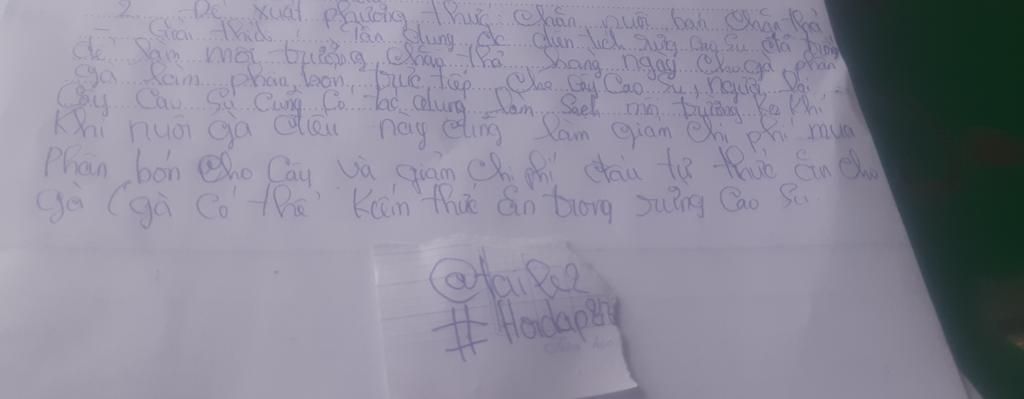 2. Đề xuất phương thức chăn nuôi bán chăn thả
- Giải thích: tận dụng các diện tích rừng cao su đã trồng
để làm môi trường chăn thả hàng ngày cho gà, phân
gà làm phân bón trực tiếp cho cây cao su, ngược lại
cây cau su cũng có tác dụng làm sạch môi trường
khi nuôi gà điều này cũng làm giảm chi phí mua
phân bón cho cây và giảm chi phí đầu tư thức ăn cho
gà (gà có thể kiến thức ăn trong rừng cao su.
@taipe2
#Hoidap247